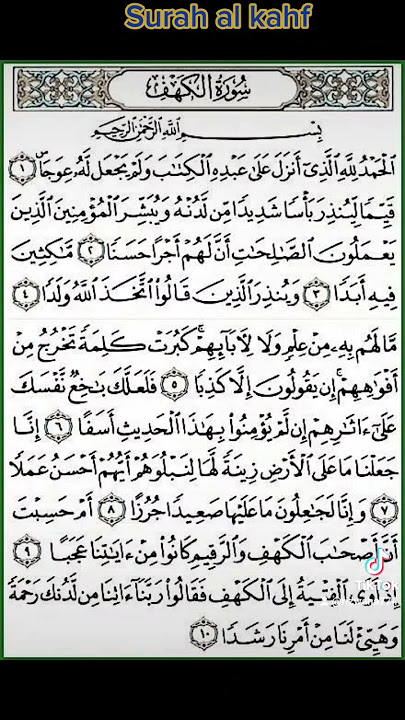 Surah al kahf
سُورَةُ الْكَهْفِ
بِسْمِ اللَّهِ الرَّحْمَٰنِ الرَّحِيمِ
الْحَمْدُ لِلَّهِ الَّذِىٓ أَنزَلَ عَلَىٰ عَبْدِهِ الْكِتَٰبَ وَلَمْ يَجْعَل لَّهُۥ عِوَجَاۜ ١
قَيِّمًا لِّيُنذِرَ بَأْسًا شَدِيدًا مِّن لَّدُنْهُ وَيُبَشِّرَ الْمُؤْمِنِينَ الَّذِينَ
يَعْمَلُونَ الصَّٰلِحَٰتِ أَنَّ لَهُمْ أَجْرًا حَسَنًا ٢ مَّٰكِثِينَ
فِيهِ أَبَدًا ٣ وَيُنذِرَ الَّذِينَ قَالُوا۟ اتَّخَذَ اللَّهُ وَلَدًا ٤
مَّا لَهُم بِهِۦ مِنْ عِلْمٍ وَلَا لِأَبَآئِهِمْ ۚ كَبُرَتْ كَلِمَةً تَخْرُجُ مِنْ
أَفْوَٰهِهِمْ ۚ إِن يَقُولُونَ إِلَّا كَذِبًا ٥ فَلَعَلَّكَ بَٰخِعٌ نَّفْسَكَ
عَلَىٰٓ ءَاثَٰرِهِمْ إِن لَّمْ يُؤْمِنُوا۟ بِهَٰذَا الْحَدِيثِ أَسَفًا ٦ إِنَّا
جَعَلْنَا مَا عَلَى الْأَرْضِ زِينَةً لَّهَا لِنَبْلُوَهُمْ أَيُّهُمْ أَحْسَنُ عَمَلًا
٧ وَإِنَّا لَجَٰعِلُونَ مَا عَلَيْهَا صَعِيدًا جُرُزًا ٨ أَمْ حَسِبْتَ
أَنَّ أَصْحَٰبَ الْكَهْفِ وَالرَّقِيمِ كَانُوا۟ مِنْ ءَايَٰتِنَا عَجَبًا ٩
إِذْ أَوَى الْفِتْيَةُ إِلَى الْكَهْفِ فَقَالُوا۟ رَبَّنَآ ءَاتِنَا مِن لَّدُنكَ رَحْمَةً
وَهَيِّئْ لَنَا مِنْ أَمْرِنَا رَشَدًا ١٠
TIKTOK